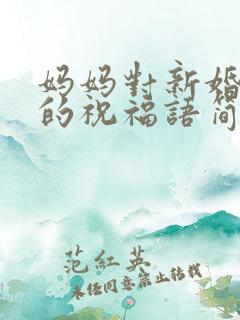 妈妈對新婚
的祝福語简
范紅英
未任同意禁止转载